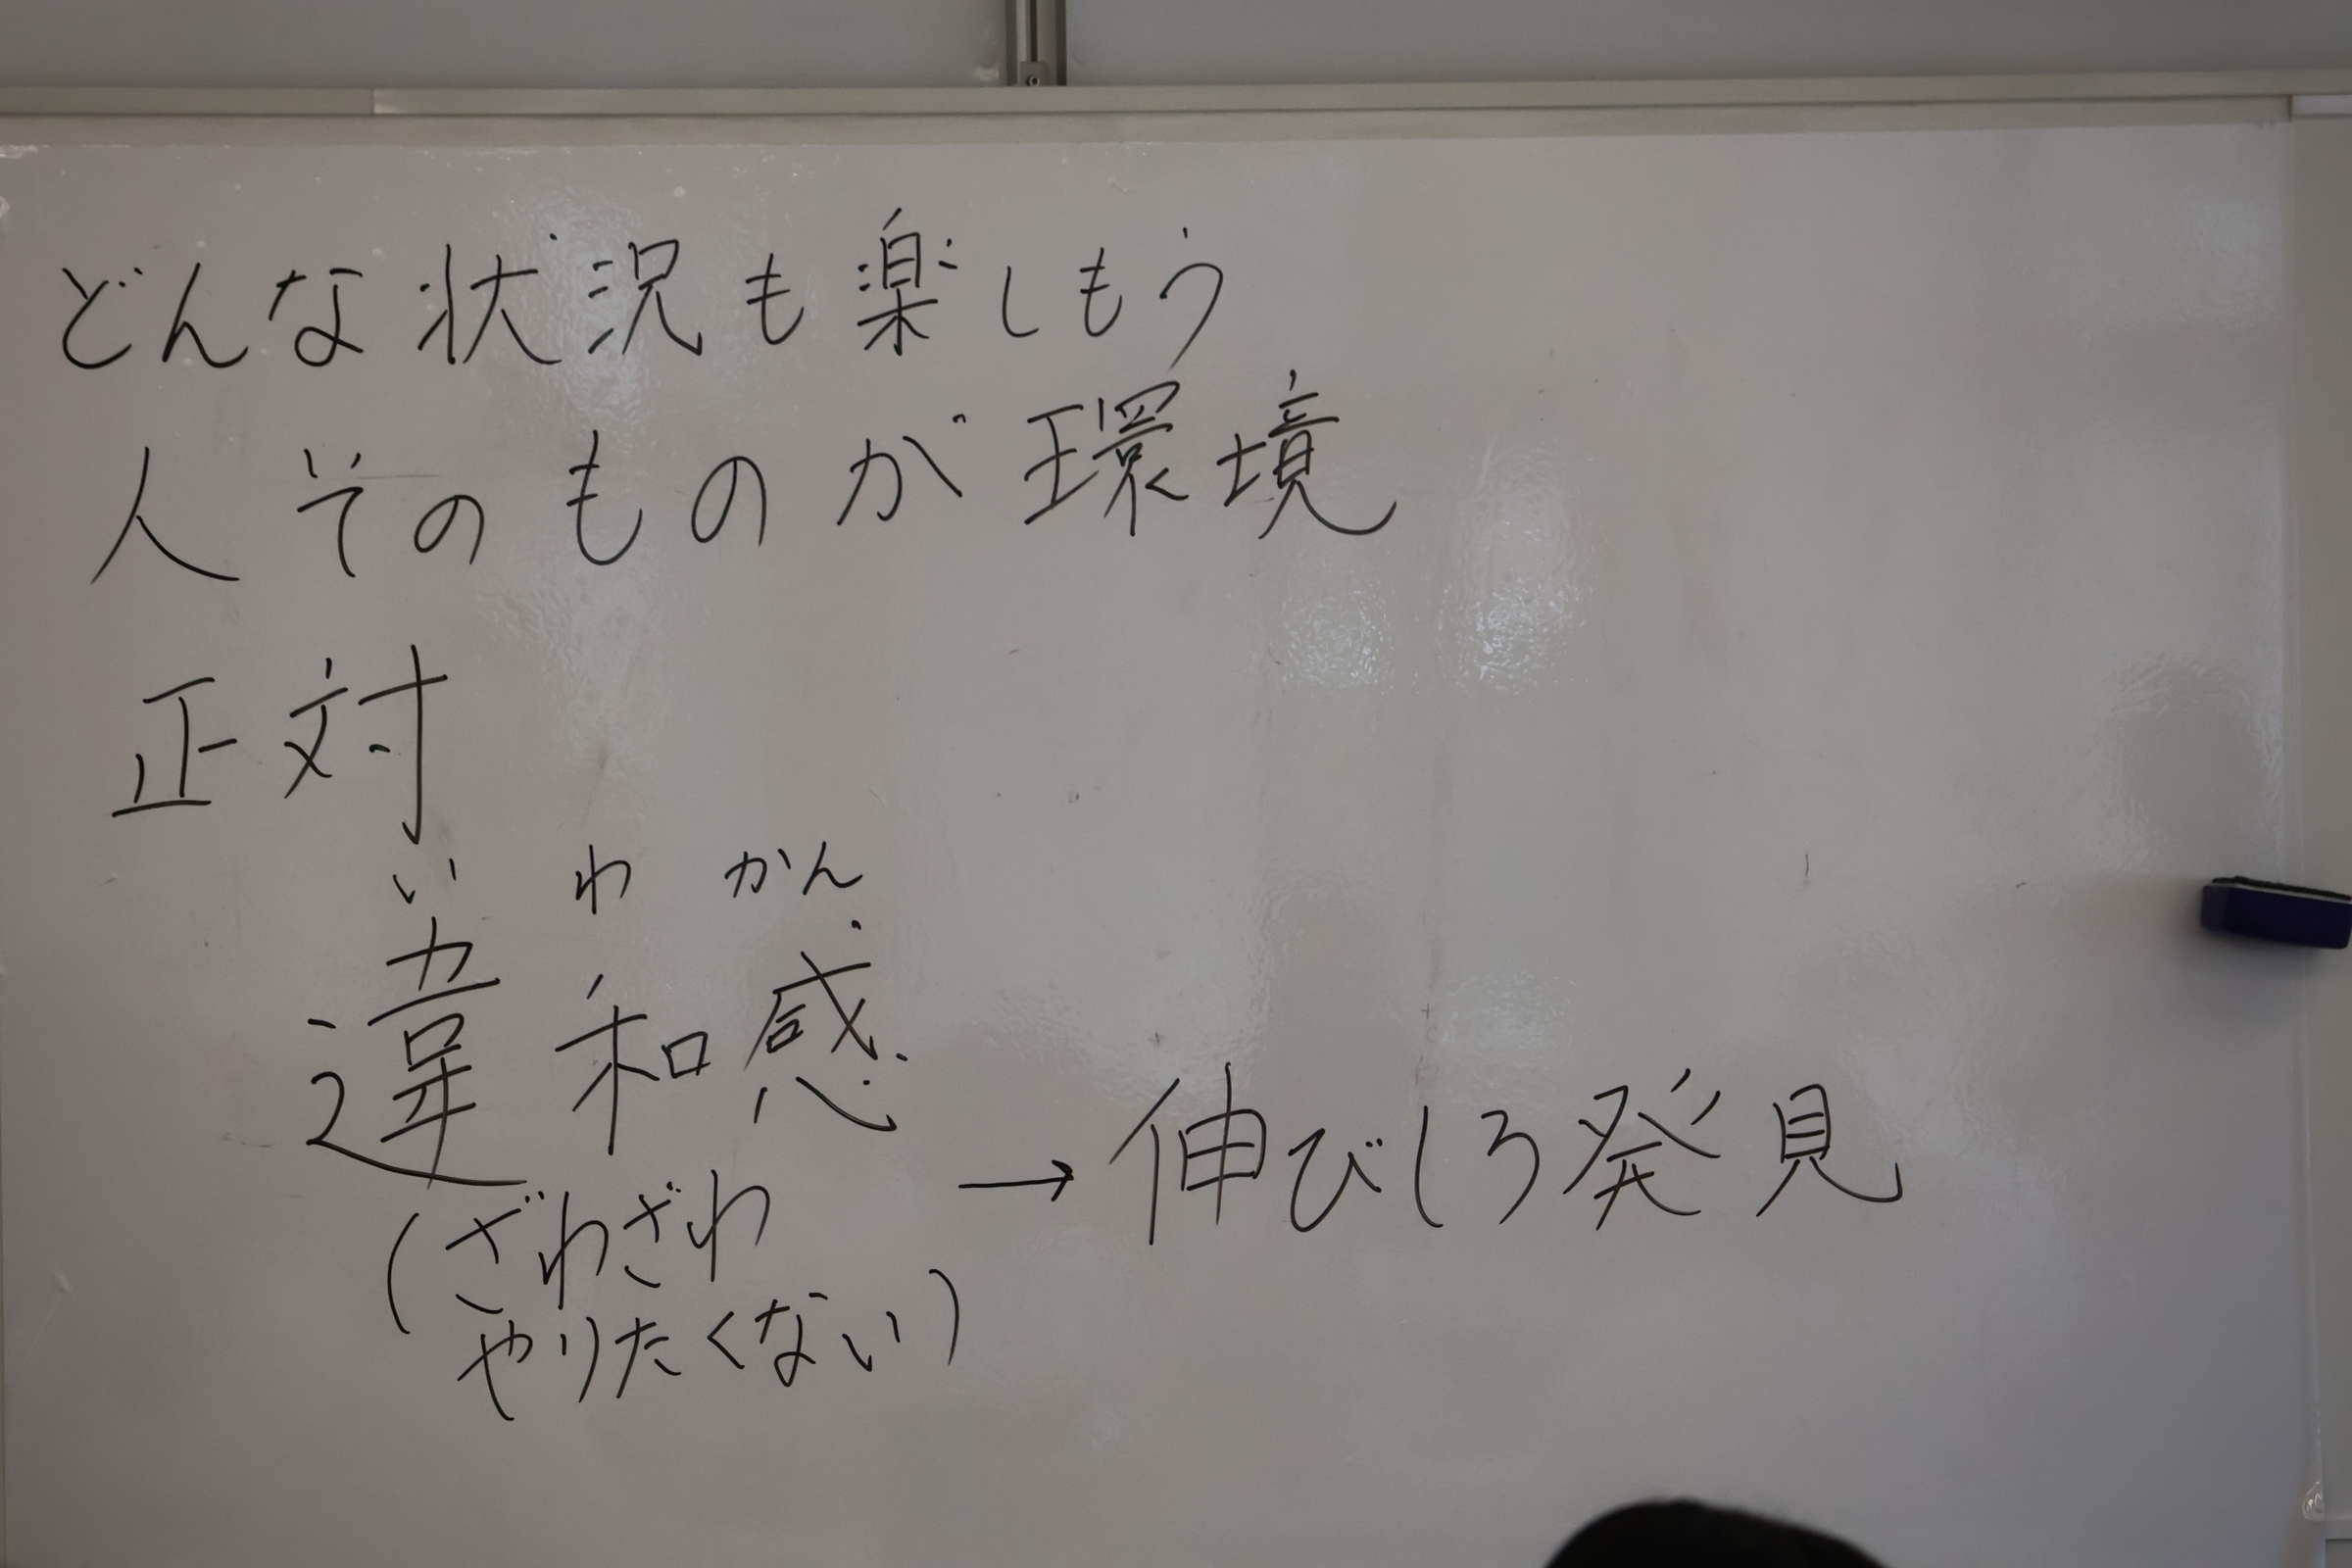 どんな状況も楽しもう
人そのものが環境
正対
いわかん
違和感
→伸びしろ発見
(ざわざわ
やりたくない)